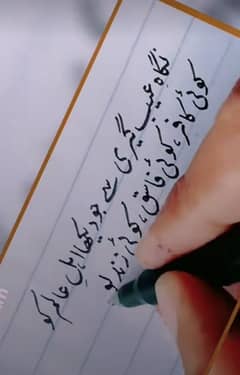 نگاہِ عیب گیری سے جو دیکھا اہلِ عالم کو
کوئی کافر، کوئی فاسق، کوئی زندیق